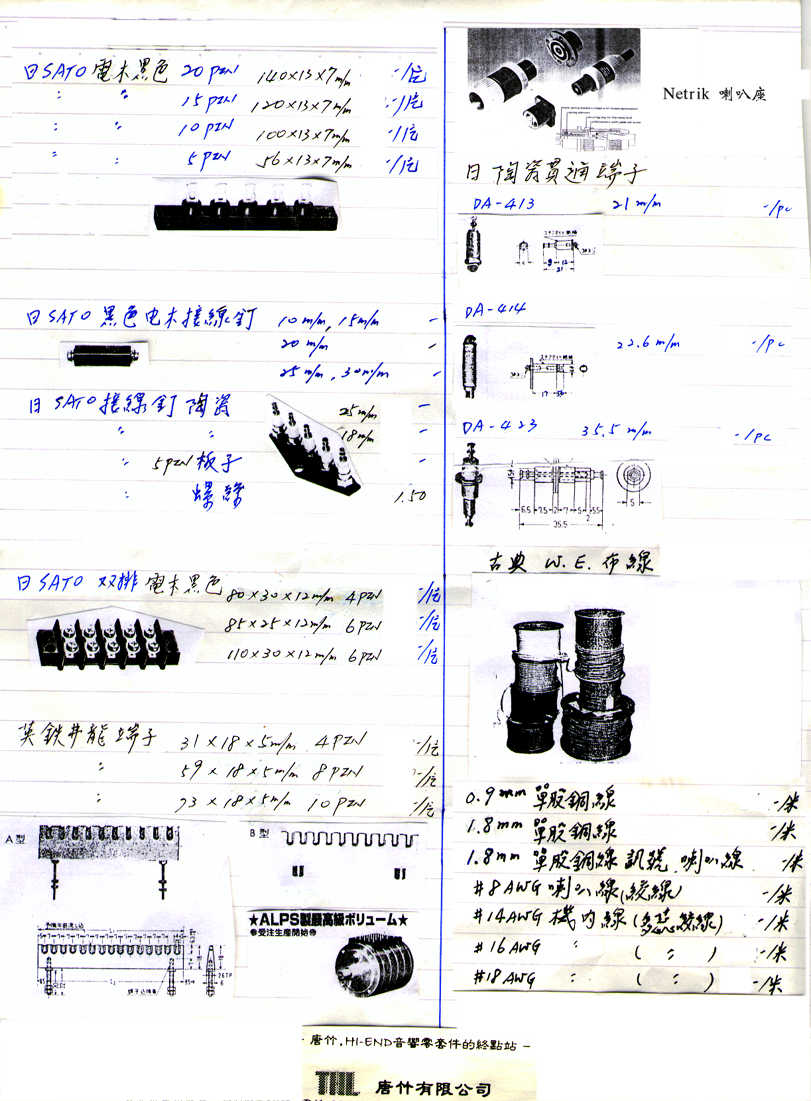 日SATO 電木黑色 20 PIN 140×13×7m/m -/佰
〃 〃 15 PIN 120×13×7m/m -/佰
〃 〃 10 PIN 100×13×7m/m -/佰
〃 〃 5 PIN 56×13×7m/m -/佰
日 SATO 黑色电木接線釘 10 m/m, 15m/m -
20 m/m -
25 m/m, 30m/m -
日 SATO 接線釘 陶瓷 25m/m -
〃 〃 18m/m -
〃 5PIN 板子 -
〃 螺絲 1.50
日 SATO 双排 電木黑色 80×30×12m/m 4PIN -/佰
85×25×12m/m 6 PIN -/佰
110×30×12m/m 6 PIN -/佰
英鉄弗龍端子 31×18×5m/m 4PIN -/佰
〃 59×18×5m/m 8PIN -/佰
〃 73×18×5m/m 10 PIN -/佰
A型
B型
★ALPS製最高級ボリューム★
●受注生産開始●
Netrik 喇叭座
日陶瓷貫通端子
DA-413 21 m/m -/pc
DA-414
22.6 m/m -/pc
17
DA-423 35.5 m/m -/pc
6.5 7.5 2 7 5 5.5
2
35.5
5
古典 W.E. 布線
0.9mm 單股銅線 -/米
1.8mm 單股銅線 -/米
1.8mm 單股銅線 訊號 喇叭線 -/米
#8AWG 喇叭線(絞線) -/米
#14AWG 機内線(多芯絞線) -/米
#16 AWG 〃 ( 〃 ) -/米
#18 AWG 〃 ( 〃 ) -/米
- 唐竹.HI-END音響零套件的終點站 -
THL 唐竹有限公司